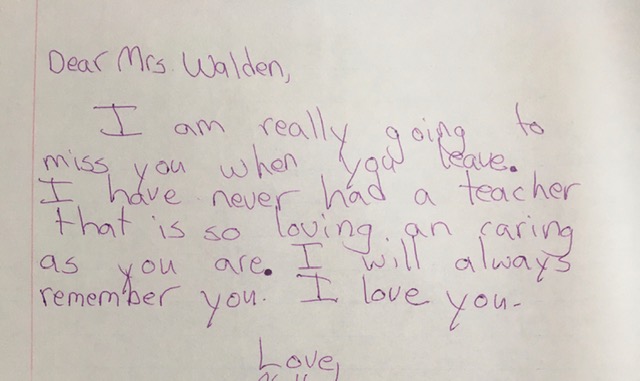 Dear Mrs Walden,
I am really going to
miss you when you leave.
I have never had a teacher
that is so loving an caring
as you are. I will always
remember you. I love you.
Love,